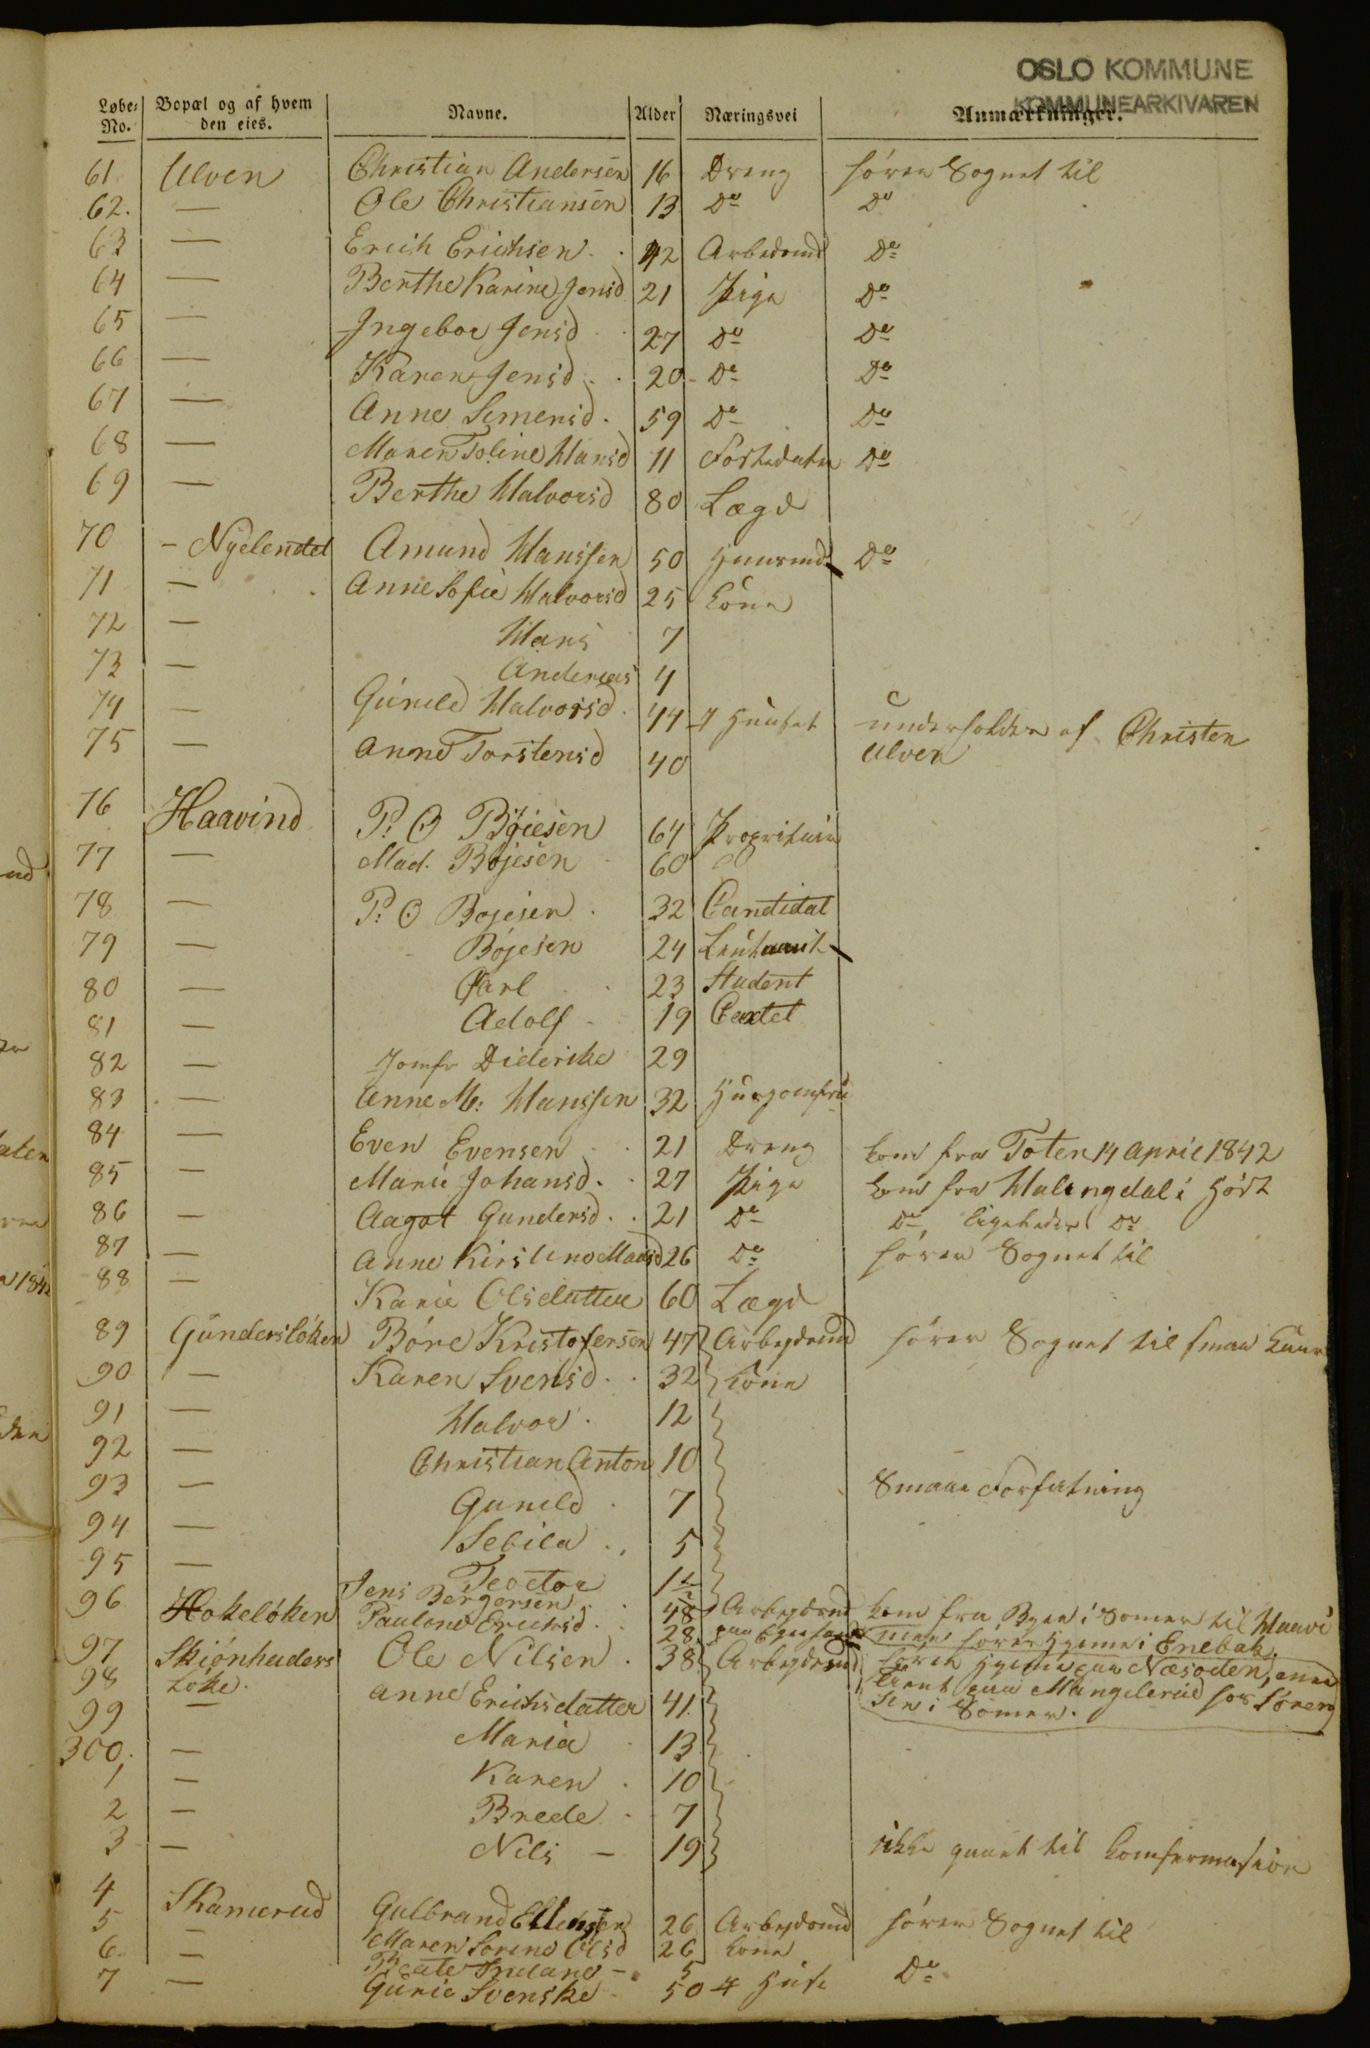 OSLO KOMMUNE
KOMMUNEARKIVAREN
Løbe-No. Bopæl og af hvem den eies. Navne. Alder Næringsvei Anmærkninger.
61 Ulven Christian Andersen 16 Dreng hører Sognet til
62. — Ole Christiansen 13 Do Do
63 — Erich Erichsen 42 Arbedsmd Do
64 — Berthe Karine Jensd 21 Pige Do
65 — Ingebor Jensd 27 Do Do
66 — Karen Jensd 20 Do Do
67 — Anne Simensd 59 Do Do
68 — Maren Toline Hansd 11 Fostedater Do
69 — Berthe Halvorsd 80 Lægd
70 — Nyelendet Amund Hanssen 50 Huusmd Do
71 — Anne Sofie Halvorsd 25 kone
72 — Hans 7
73 — Andereas 4
74 — Guneld Halvorsd 44 I Huuset underholden af Christen
75 — Anne Torstensd 40 Ulven
76 Haavind P: O Bøiesen 64 Propritair
77 — Mad. Bøjesen 60
78 — P: O Bojesen 32 Candidat
79 — Bøjesen 24 Leutnant
80 — Carl 23 Student
81 — Adolf 19 Cadet
82 — Jomfr Diderike 29
83 — Anne M: Hanssen 32 Husjomfru
84 — Even Evensen 21 Dreng kom fra Toten 14 April 1842
85 — Marie Johansd 27 Pige kom fra Halingdal i Høst
86 — Aagot Gundersd 21 Do Do ligeledes Do
87 — Anne Kirstine Madsd 26 Do hører Sognet til
88 — Karie Olsdatter 60 Lægd
89 Gundersløken Børe Kristofersen 47 Arbejdsmd hører Sognet til smaa Kaar
90 — Karen Svensd 32 kone
91 — Halvor 12
92 — Christian Anton 10
93 — Guneld 7 Smaae Forfatning
94 — Sebila 5
95 — Teodor 1½
96 Hokeløken Jens Bergersen 48 Arbejdsmd kom fra Byen i Somer til Haavi
Pauline Erichsd 28 men hører Hjeme i Enebak
97 Skjønhaders Ole Nilsen 38 Arbejdsmd hører Hjeme paa Næsoden, men
98 Løke. Anne Erichsdatter 41 tient paa Mangelerud hos Søren
99 — Maria 13 sen i Somer.
300, — Karen 10
1 — Brede 7
2 — Nils — 19 ikke gaaet til komfermasion
3 —
4 Skamerud Gulbrand Ellingsen 26 Arbejdsmd hører Sognet til
5 — Maren Sorine Olsd 26 kone
6 — Beate — 5
7 — Gurie Svenske 50 I Huse Do